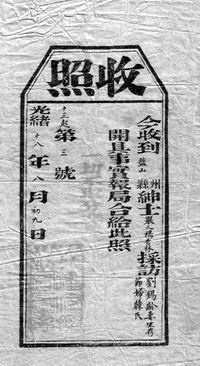 收照
今收到鹽山
州縣紳士
採訪劉錫齡妻生存
節婦韓氏
開具事實報局合給此照
十三起第三號
光緒十八年八月初九日